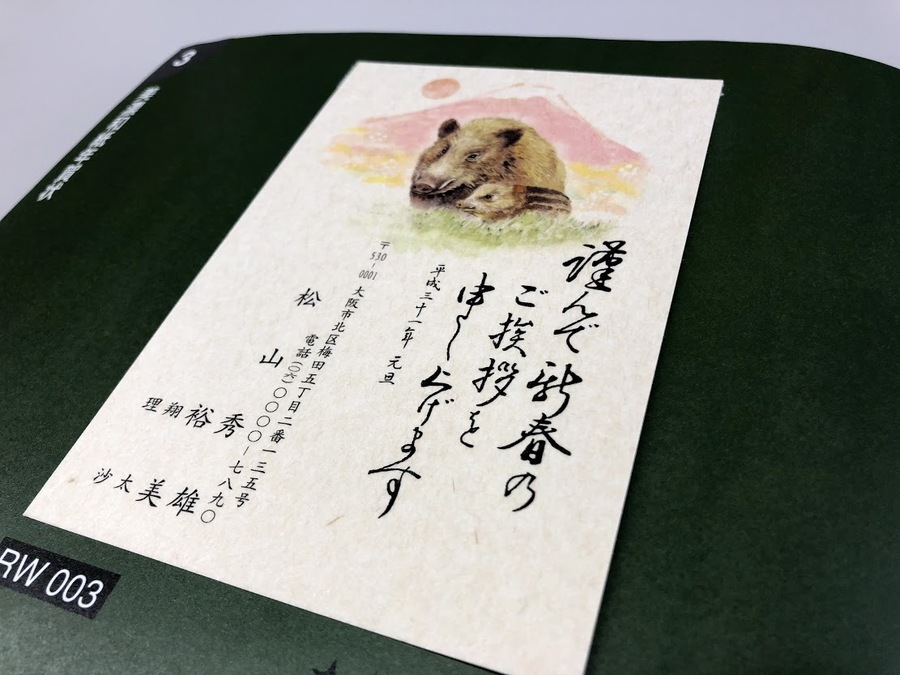 3
謹んで新春の
ご挨拶を
申し上げます
平成三十一年 元旦
〒530-0001 大阪市北区梅田五丁目二番一三五号
電話(〇六)〇〇〇〇-七八九〇
松山 秀雄
裕美
翔太
理沙
RW 003